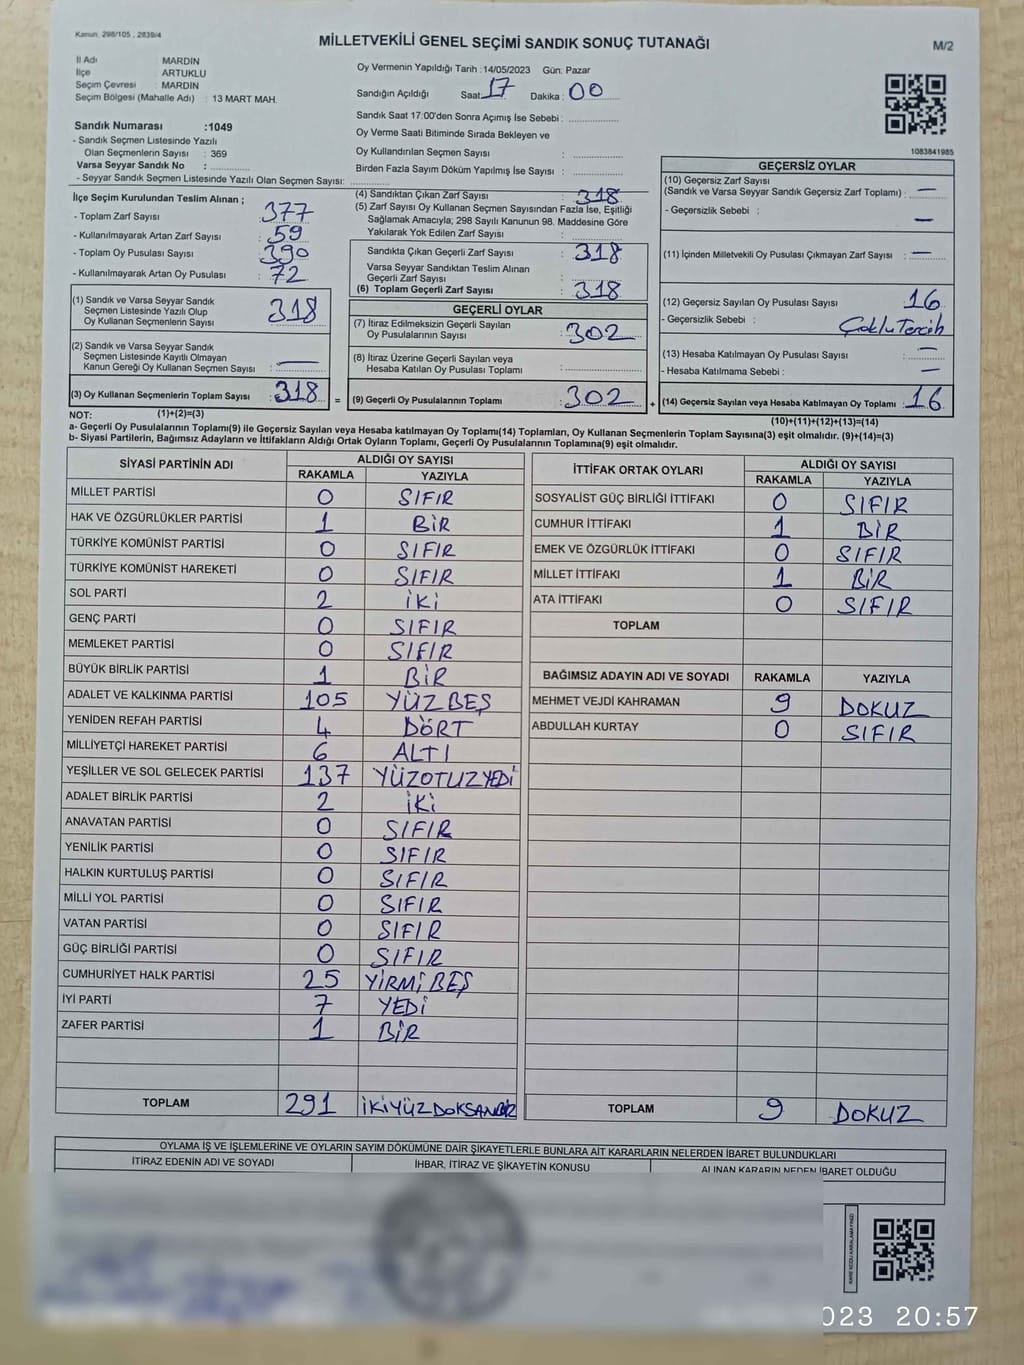 Kanun: 298/105 , 2839/4
MİLLETVEKİLİ GENEL SEÇİMİ SANDIK SONUÇ TUTANAĞI
M/2
İl Adı : MARDİN
İlçe : ARTUKLU
Seçim Çevresi : MARDİN
Seçim Bölgesi (Mahalle Adı) : 13 MART MAH.
Sandık Numarası :1049
- Sandık Seçmen Listesinde Yazılı
Olan Seçmenlerin Sayısı : 369
Varsa Seyyar Sandık No :
- Seyyar Sandık Seçmen Listesinde Yazılı Olan Seçmen Sayısı:
Oy Vermenin Yapıldığı Tarih :14/05/2023 Gün: Pazar
Sandığın Açıldığı Saat: 17 Dakika : 00
Sandık Saat 17:00'den Sonra Açımış İse Sebebi :
Oy Verme Saati Bitiminde Sırada Bekleyen ve
Oy Kullandırılan Seçmen Sayısı :
Birden Fazla Sayım Döküm Yapılmış İse Sayısı :
1083841985
İlçe Seçim Kurulundan Teslim Alınan ;
- Toplam Zarf Sayısı : 377
- Kullanılmayarak Artan Zarf Sayısı : 59
- Toplam Oy Pusulası Sayısı : 390
- Kullanılmayarak Artan Oy Pusulası : 72
(1) Sandık ve Varsa Seyyar Sandık
Seçmen Listesinde Yazılı Olup
Oy Kullanan Seçmenlerin Sayısı : 318
(2) Sandık ve Varsa Seyyar Sandık
Seçmen Listesinde Kayıtlı Olmayan
Kanun Gereği Oy Kullanan Seçmen Sayısı : —
(3) Oy Kullanan Seçmenlerin Toplam Sayısı : 318 =
(4) Sandıktan Çıkan Zarf Sayısı : 318
(5) Zarf Sayısı Oy Kullanan Seçmen Sayısından Fazla İse, Eşitliği
Sağlamak Amacıyla; 298 Sayılı Kanunun 98. Maddesine Göre
Yakılarak Yok Edilen Zarf Sayısı :
Sandıkta Çıkan Geçerli Zarf Sayısı : 318
Varsa Seyyar Sandıktan Teslim Alınan
Geçerli Zarf Sayısı :
(6) Toplam Geçerli Zarf Sayısı : 318
GEÇERLİ OYLAR
(7) İtiraz Edilmeksizin Geçerli Sayılan
Oy Pusulalarının Sayısı : 302
(8) İtiraz Üzerine Geçerli Sayılan veya
Hesaba Katılan Oy Pusulası Toplamı :
(9) Geçerli Oy Pusulalarının Toplamı : 302 +
GEÇERSİZ OYLAR
(10) Geçersiz Zarf Sayısı
(Sandık ve Varsa Seyyar Sandık Geçersiz Zarf Toplamı) : —
- Geçersizlik Sebebi : —
(11) İçinden Milletvekili Oy Pusulası Çıkmayan Zarf Sayısı : —
(12) Geçersiz Sayılan Oy Pusulası Sayısı : 16
- Geçersizlik Sebebi : Çoklu Tercih
(13) Hesaba Katılmayan Oy Pusulası Sayısı : —
- Hesaba Katılmama Sebebi : —
(14) Geçersiz Sayılan veya Hesaba Katılmayan Oy Toplamı : 16
NOT: (1)+(2)=(3)
(10)+(11)+(12)+(13)=(14)
a- Geçerli Oy Pusulalarının Toplamı(9) ile Geçersiz Sayılan veya Hesaba katılmayan Oy Toplamı(14) Toplamları, Oy Kullanan Seçmenlerin Toplam Sayısına(3) eşit olmalıdır. (9)+(14)=(3)
b- Siyasi Partilerin, Bağımsız Adayların ve İttifakların Aldığı Ortak Oyların Toplamı, Geçerli Oy Pusulalarının Toplamına(9) eşit olmalıdır.
SİYASİ PARTİNİN ADI ALDIĞI OY SAYISI
RAKAMLA YAZIYLA
MİLLET PARTİSİ 0 SIFIR
HAK VE ÖZGÜRLÜKLER PARTİSİ 1 BİR
TÜRKİYE KOMÜNİST PARTİSİ 0 SIFIR
TÜRKİYE KOMÜNİST HAREKETİ 0 SIFIR
SOL PARTİ 2 İKİ
GENÇ PARTİ 0 SIFIR
MEMLEKET PARTİSİ 0 SIFIR
BÜYÜK BİRLİK PARTİSİ 1 BİR
ADALET VE KALKINMA PARTİSİ 105 YÜZ BEŞ
YENİDEN REFAH PARTİSİ 4 DÖRT
MİLLİYETÇİ HAREKET PARTİSİ 6 ALTI
YEŞİLLER VE SOL GELECEK PARTİSİ 137 YÜZOTUZYEDİ
ADALET BİRLİK PARTİSİ 2 İKİ
ANAVATAN PARTİSİ 0 SIFIR
YENİLİK PARTİSİ 0 SIFIR
HALKIN KURTULUŞ PARTİSİ 0 SIFIR
MİLLİ YOL PARTİSİ 0 SIFIR
VATAN PARTİSİ 0 SIFIR
GÜÇ BİRLİĞİ PARTİSİ 0 SIFIR
CUMHURİYET HALK PARTİSİ 25 YİRMİ BEŞ
İYİ PARTİ 7 YEDİ
ZAFER PARTİSİ 1 BİR
TOPLAM 291 İKİYÜZ DOKSANBİR
İTTİFAK ORTAK OYLARI ALDIĞI OY SAYISI
RAKAMLA YAZIYLA
SOSYALİST GÜÇ BİRLİĞİ İTTİFAKI 0 SIFIR
CUMHUR İTTİFAKI 1 BİR
EMEK VE ÖZGÜRLÜK İTTİFAKI 0 SIFIR
MİLLET İTTİFAKI 1 BİR
ATA İTTİFAKI 0 SIFIR
TOPLAM
BAĞIMSIZ ADAYIN ADI VE SOYADI RAKAMLA YAZIYLA
MEHMET VEJDİ KAHRAMAN 9 DOKUZ
ABDULLAH KURTAY 0 SIFIR
TOPLAM 9 DOKUZ
OYLAMA İŞ VE İŞLEMLERİNE VE OYLARIN SAYIM DÖKÜMÜNE DAİR ŞİKAYETLERLE BUNLARA AİT KARARLARIN NELERDEN İBARET BULUNDUKLARI
İTİRAZ EDENİN ADI VE SOYADI İHBAR, İTİRAZ VE ŞİKAYETİN KONUSU ALINAN KARARIN NEDEN İBARET OLDUĞU
KARE KODU KARALAMAYINIZ!
023 20:57